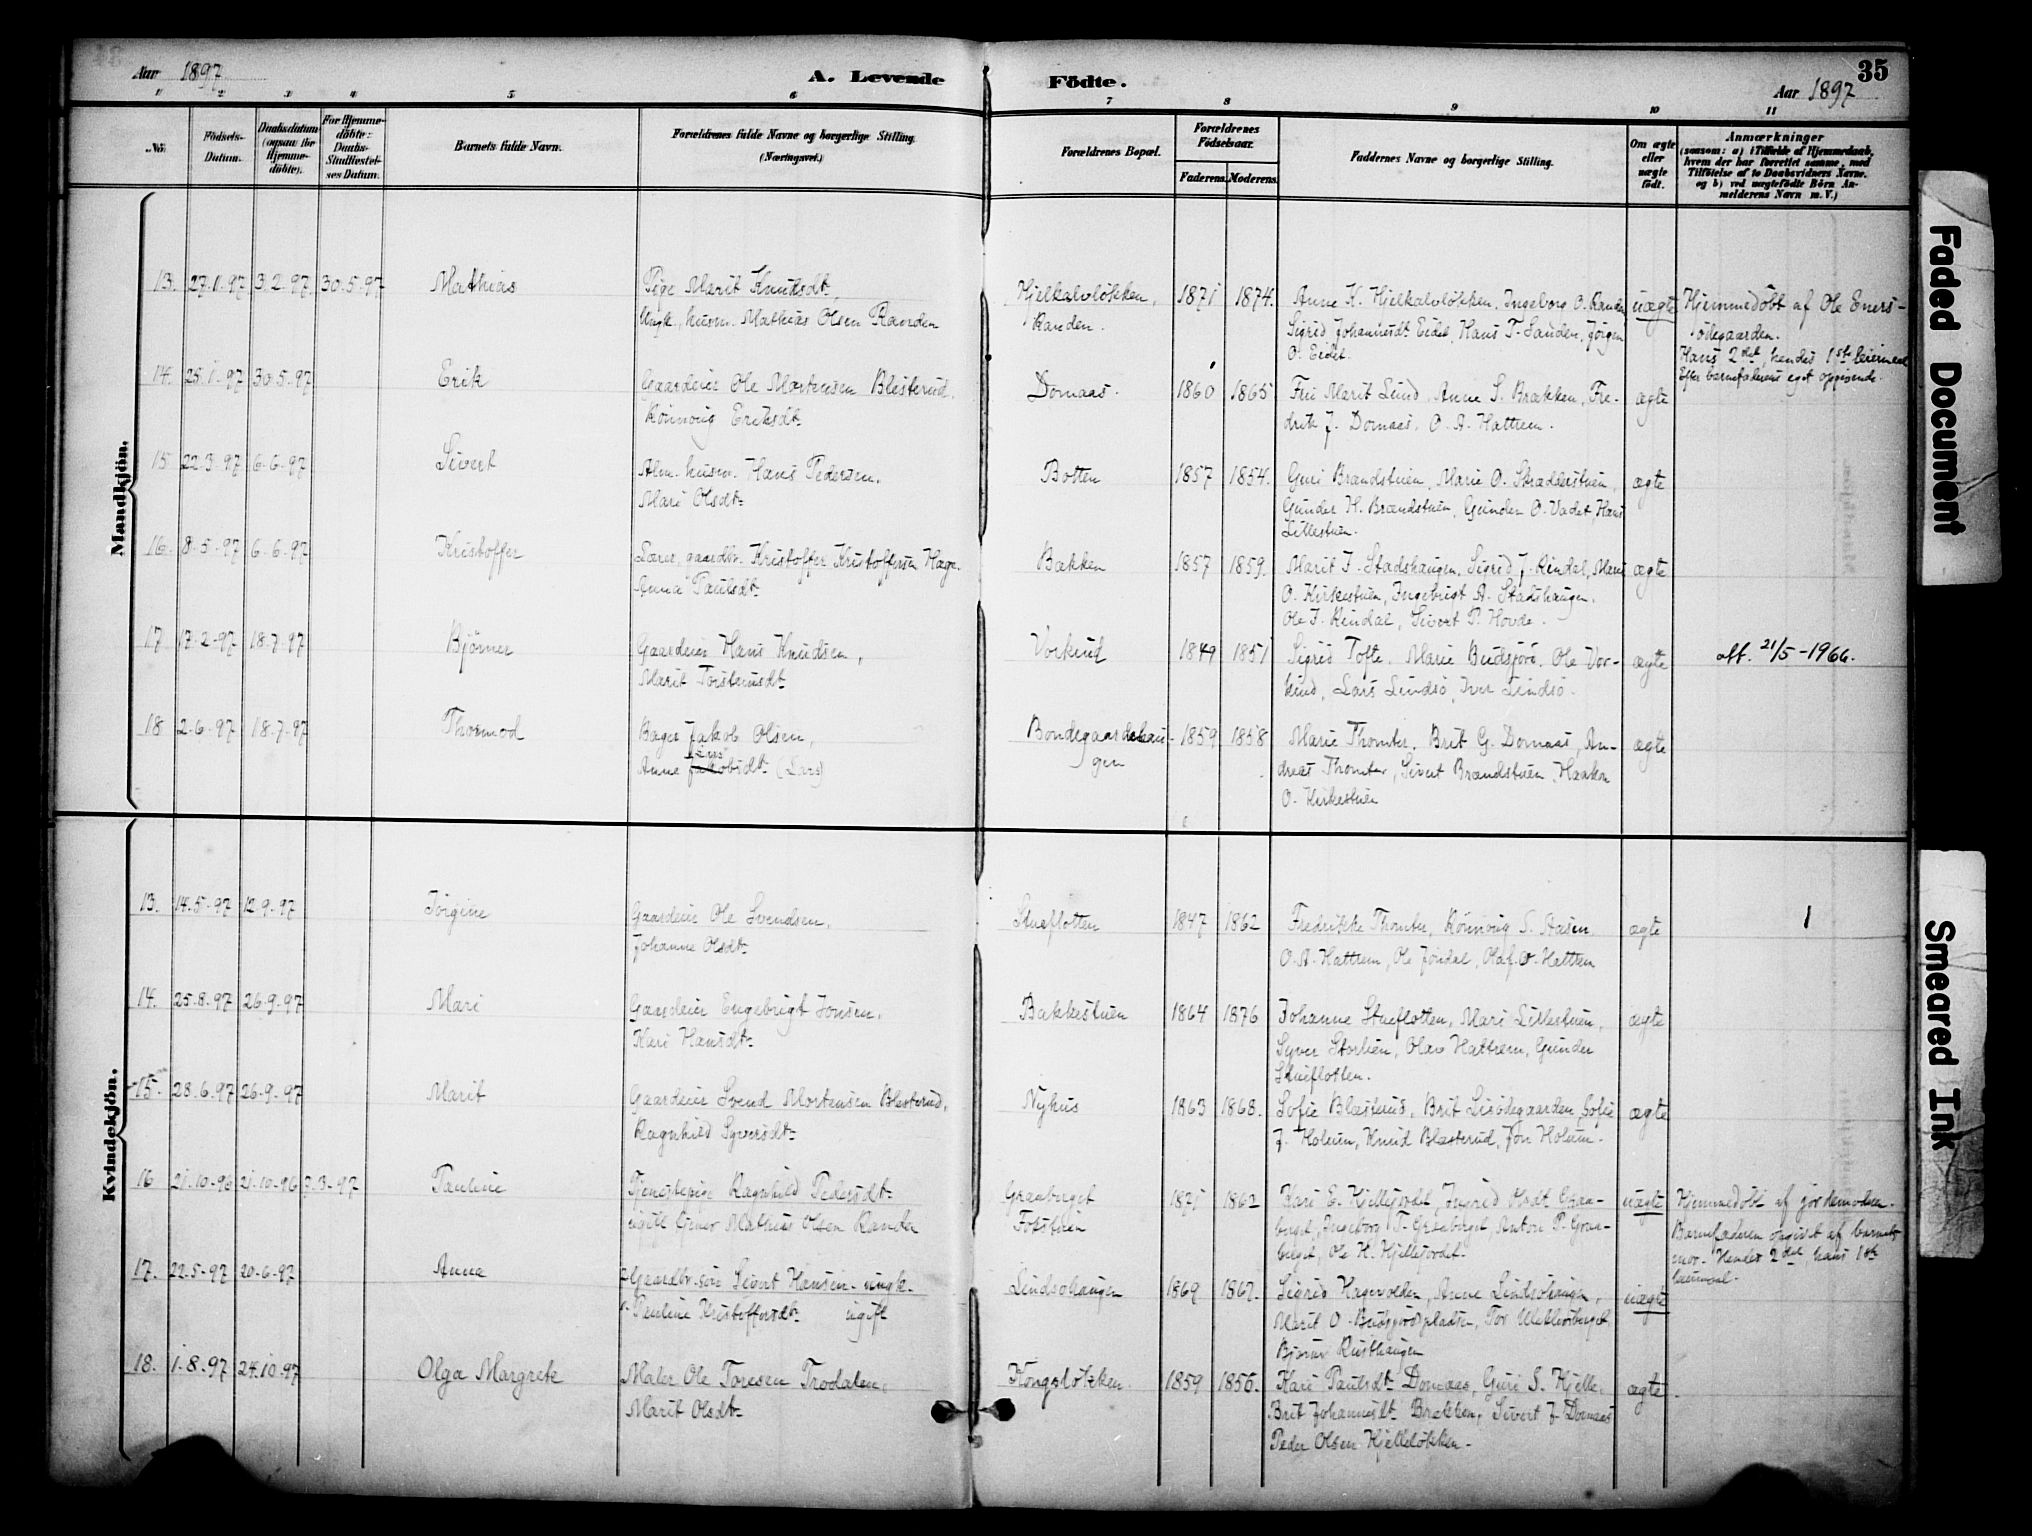 Aar 1897
A. Levende
Födte.
35
Aar 1897
1 2 3 4 5 6 7 8 9 10 11
No.
Födsels-
Datum.
Daabsdatum
(ogsaa for
Hjemme-
döbte).
For Hjemme-
döbte:
Daabs-
Stadfæstel-
ses Datum.
Barnets fulde Navn.
Forældrenes fulde Navne og borgerlige Stilling
(Næringsvei.)
Forældrenes Bopæl.
Forældrenes
Födselsaar.
Faderens. Moderens.
Faddernes Navne og borgerlige Stilling.
Om ægte
eller
uægte
födt.
Anmærkninger
(saasom: a) i Tilfælde af Hjemmedaab,
hvem der har forrettet samme, med
Tilföielse af to Daabsvidners Navne,
og b) ved uægtefödte Börn An-
melderens Navn m. V.)
Mandkjön.
13. 27.1.97 3.2.97 30.5.97 Mathias
Pige Marit Knudsdt.,
Ungk., husm. Mathias Olsen Randen
Hjelkalvløkken,
Randen.
1871 1874.
Anne K. Hjelkalvløkken, Ingeborg O. Randen
Sigrid Johannesdt. Eidet, Hans T. Sanden, Jørgen
O. Eidet.
uægte
Hjemmedöbt af Ole Eners-
ödegaarden.
Hans 2det, hendes 1ste leiermaal
Efter barnefaderens eget opgivende.
14. 25.1.97 30.5.97 Erik
Gaardeier Ole Mortensen Blesterud,
Rönnoug Eriksdt.
Domaas.
1860 1865
Fru Marit Lund, Anne S. Brækken, Fre-
drik J. Domaas, O. A. Hattrem.
ægte
15 22.3.97 6.6.97 Sivert
Alm. husm. Hans Pedersen,
Mari Olsdt.
Botten
1857 1854.
Guri Brandstuen, Marie O. Skrædderstuen,
Gunder H. Brændstuen, Gunder O. Vadet, Hans
Lillestuen.
ægte
16. 8.5.97 6.6.97 Kristoffer
Lærer, gaardbr. Kristoffer Kristoffersen Hage.
Anna Paulsdt.
Bakken
1857 1859.
Marit J. Stadshaugen, Sigrid J. Rindal, Marit
O. Kirkestuen, Ingebrigt A. Stadshaugen,
Ole J. Rindal, Sivert P. Hovde.
ægte
17 17.2.97 18.7.97 Bjørner
Gaardeier Hans Knudsen,
Marit Torstensdt.
Vorkind
1849 1851
Sigrid Tofte, Marie Budsjord, Ole Vor-
kind, Lars Lindsö, Iver Lindsö.
ægte
att. 21/5-1966.
18 2.6.97 18.7.97 Thormod
Bager Jakob Olsen,
Lars
Anne Jakobsdt. (Lars)
Bondegaardshau-
gen
1859 1858
Marie Thomter, Brit G. Domaas, An-
dreas Thomter, Sivert Brændstuen, Haakon
O. Kirkestuen
ægte
Kvindekjön.
13. 14.5.97 12.9.97 Jörgine
Gaardeier Ole Svendsen,
Johanne Olsdt.
Stueflotten
1847 1862
Fredrikke Thomter, Rönnoug S. Aasen
O. A. Hattrem, Ole Jøndal, Olaf O. Hattrem
ægte
14. 25.8.97 26.9.97 Mari
Gaardeier Engebrigt Jonsen,
Kari Hansdt.
Bakkestuen
1864 1876
Johanne Stueflotten, Mari Lillestuen,
Syver Storlien, Olav Hattrem, Gunder
Stueflotten.
ægte
15. 28.6.97 26.9.97 Marit
Gaardeier Svend Mortensen Blesterud,
Ragnhild Syversdt.
Nyhus
1863 1868.
Sofie Blæsterud, Brit Lisödegaarden, Sofie
J. Holum, Knud Blæsterud, Jon Holum.
ægte
16 21.10.96 21.10.96 7.3.97 Pauline
Tjenestepige Ragnhild Pedersdt.
ugift tjener Mathias Olsen Randen
Graaberget
Fotstuen
1871 1862
Kari E. Kjellesvolt, Ingrid Olsdt. Graa-
berget, Ingeborg T. Graaberget, Anton P. Graa-
berget, Ole H. Kjellesvolt.
uægte
Hjemmedöbt af jordemoderen.
Barnefaderen opgivet af barnets
mor. Hendes 2det, hans 1ste
leiermaal.
17. 22.5.97 20.6.97 Anna
Gaardbr.sön Sivert Hansen ungk.
Pauline Kristoffersdt. ugift
Lindsöhaugen
1869 1867.
Sigrid Hagevolden, Anne Lindsöhaugen,
Marit O. Budsjordspladsen, Tor
Bjørner Rusthaugen
uægte
18. 1.8.97 24.10.97 Olga Margrete
Maler Ole Toresen Trodalen,
Marit Olsdt.
Kongsløkken
1859 1856.
Kari Paulsdt. Domaas, Guri S. Kjelle,
Brit Johannesdt. Brækken, Sivert J. Domaas
Peder Olsen Kjelleløkken.
ægte
Faded Document
Smeared Ink